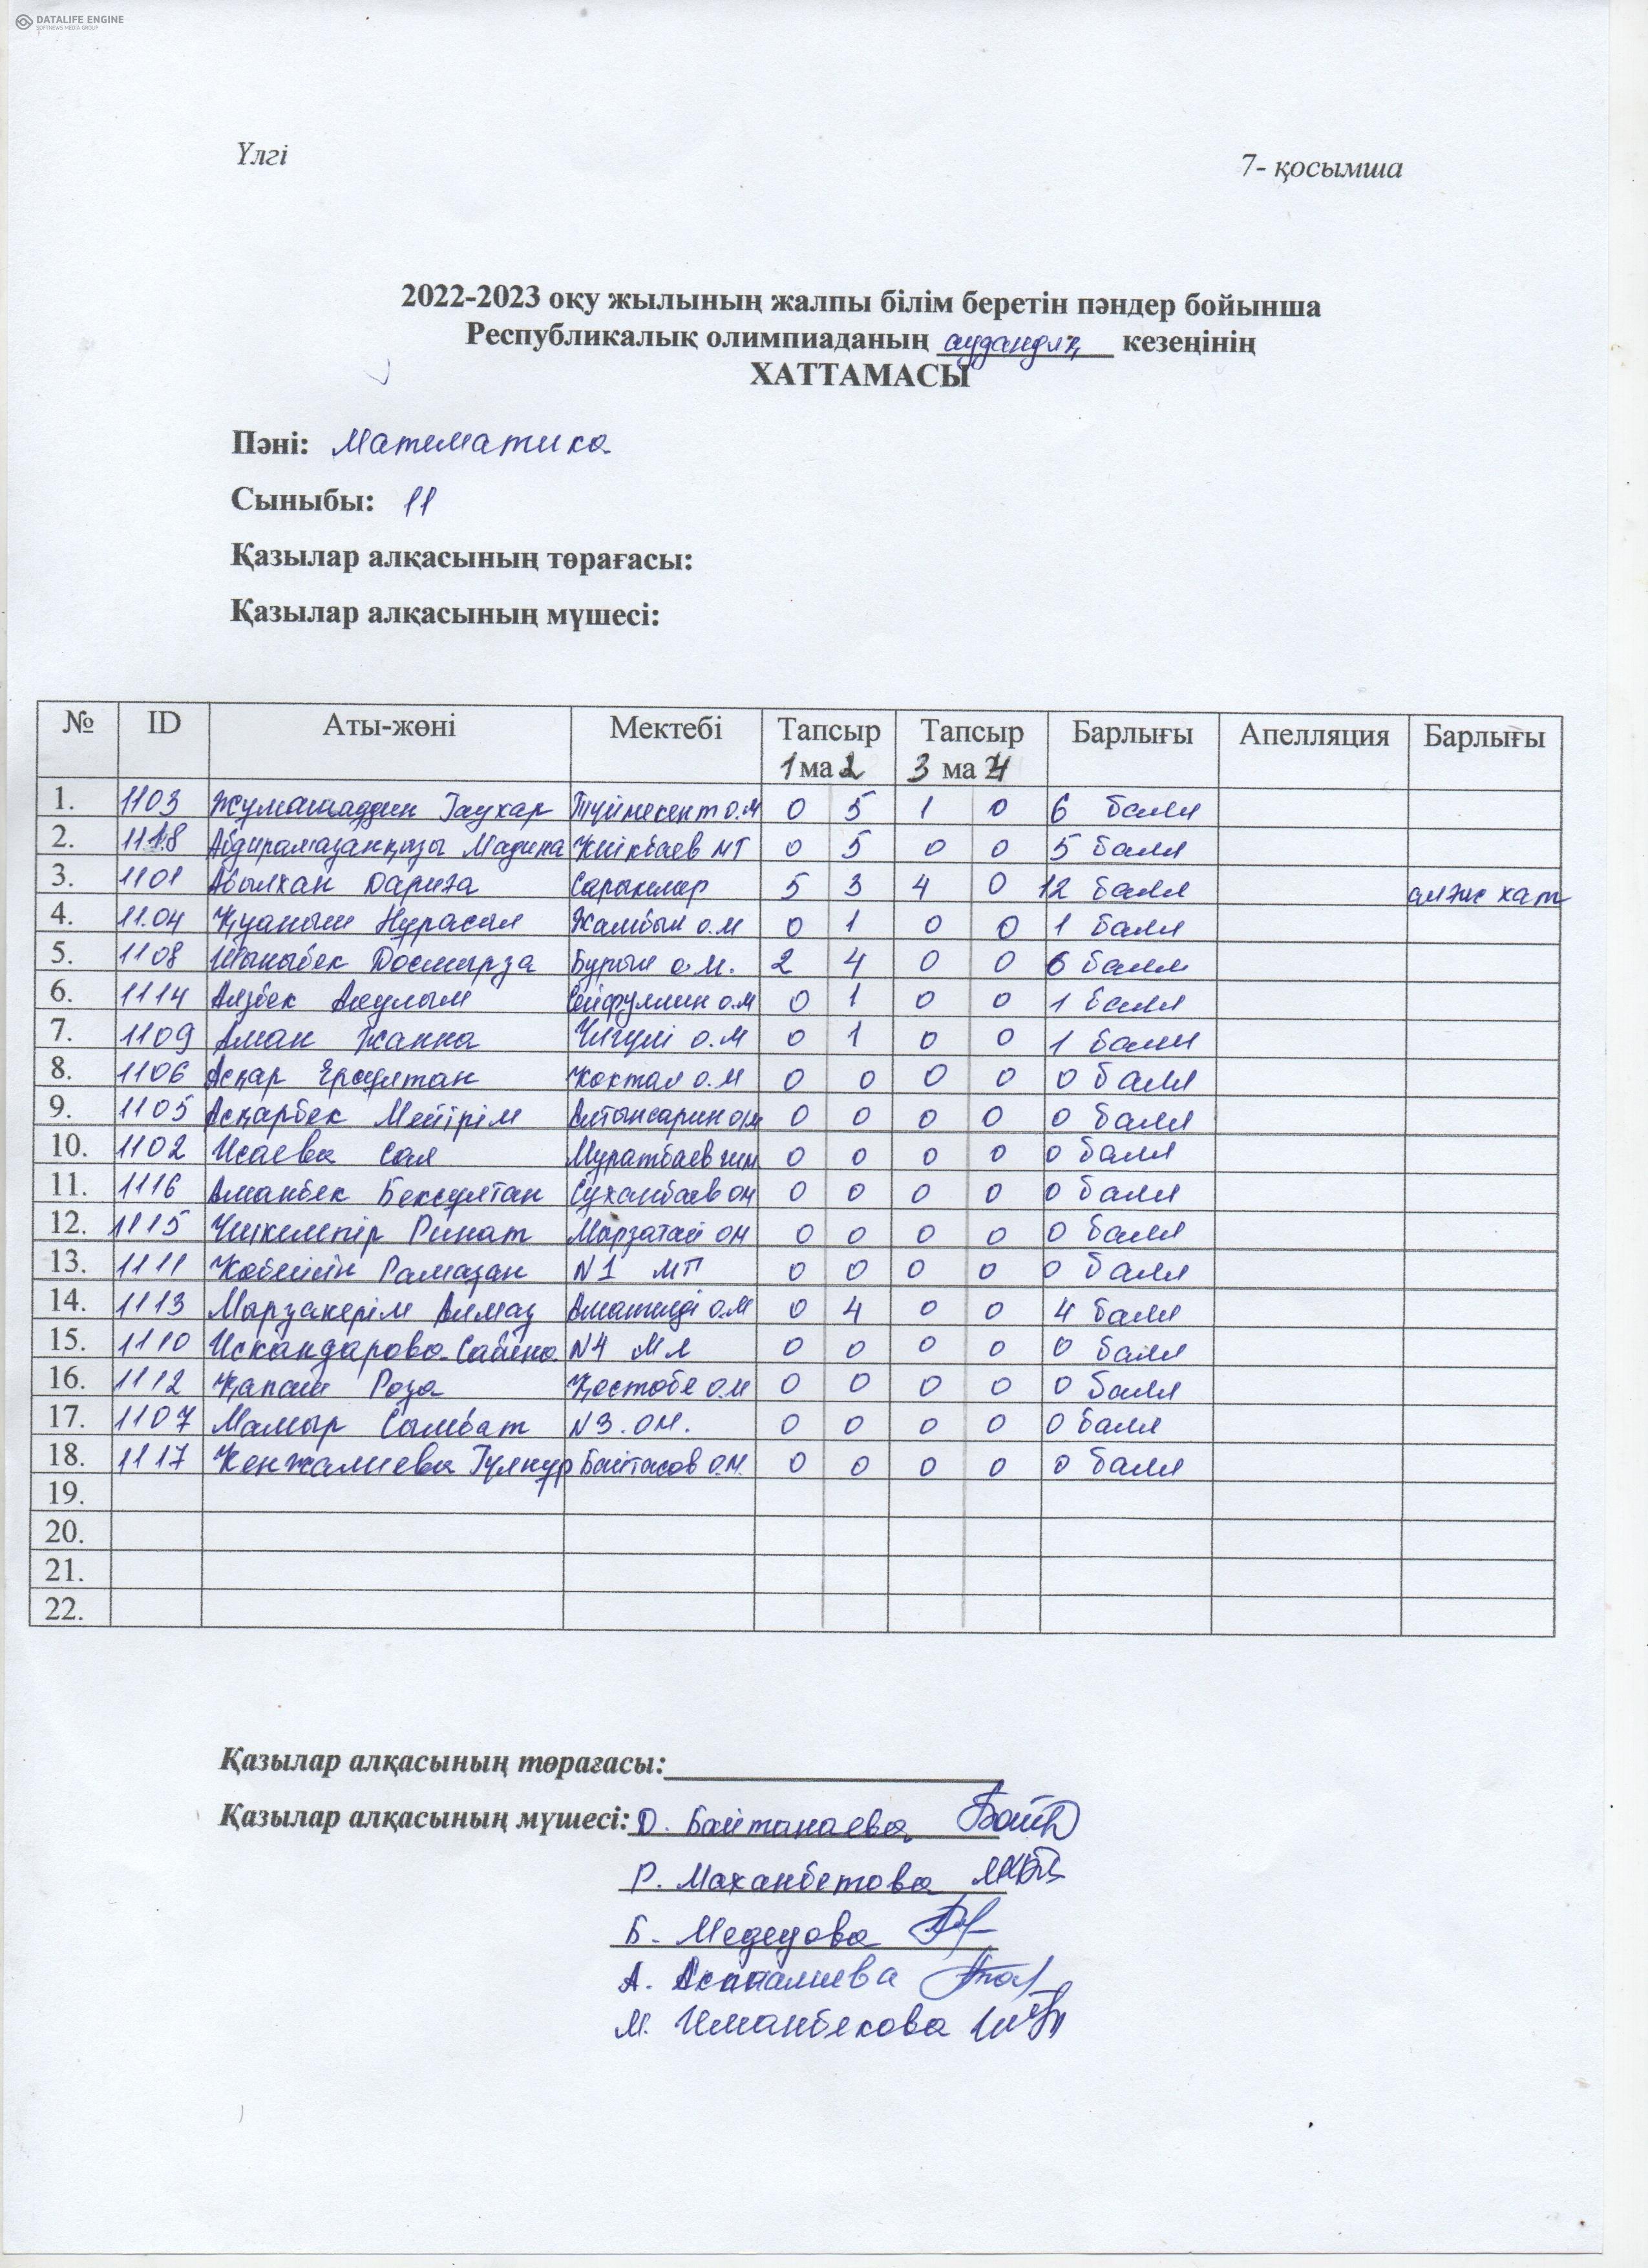 DATALIFE ENGINE
SOFTNEWS MEDIA GROUP
Үлгі
7- қосымша
2022-2023 оқу жылының жалпы білім беретін пәндер бойынша
Республикалық олимпиаданың аудандық кезеңінің
ХАТТАМАСЫ
Пәні: Математика
Сыныбы: 11
Қазылар алқасының төрағасы:
Қазылар алқасының мүшесі:
№ ID Аты-жөні Мектебі Тапсырма 1 2 Тапсырма 3 4 Барлығы Апелляция Барлығы
1. 1103 Гаухар Түймекент о.м 0 5 1 0 6 балл
2. 1118 Абдирамазанқызы Мадина НТ 0 5 0 0 5 балл
3. 1101 Абылхан Дариға Сарыкемер 5 3 4 0 12 балл алғыс хат
4. 11.04 Қуаныш Нұрасыл Жамбыл о.м 0 1 0 0 1 балл
5. 1108 Шыныбек Досмырза Бурыл о.м. 2 4 0 0 6 балл
6. 1114 Аязбек Ақұлым Сейфуллин о.м 0 1 0 0 1 балл
7. 1109 Аман Жанна Үлгүлі о.м 0 1 0 0 1 балл
8. 1106 Асқар Ерсұлтан Көктал о.м 0 0 0 0 0 балл
9. 1105 Асқарбек Мейірім Алтынсарин о/м 0 0 0 0 0 балл
10. 1102 Исаева Сая Муратбаев гим 0 0 0 0 0 балл
11. 1116 Аманбек Бексұлтан Суханбаев ом 0 0 0 0 0 балл
12. 1115 Ринат Мырзатай ом 0 0 0 0 0 балл
13. 1111 Рамазан N1 МГ 0 0 0 0 0 балл
14. 1113 Мырзакерім Алмаз о.м 0 4 0 0 4 балл
15. 1110 Искандарова Сабина N4 МЛ 0 0 0 0 0 балл
16. 1112 Қапаш Роза Қостөбе о.м 0 0 0 0 0 балл
17. 1107 Мамыр Сымбат N3. ом. 0 0 0 0 0 балл
18. 1117 Кенжалиева Гүлнұр Байтасов о.м. 0 0 0 0 0 балл
19.
20.
21.
22.
Қазылар алқасының төрағасы:
Қазылар алқасының мүшесі: Д. Байтанаева
Р. Маханбетова
Б. Медеуова
А. Аспалиева
М. Иманбекова